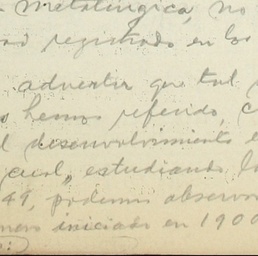 Metalúrgica, no
registrado en los
advertir que tal
hemos referido,
desenvolvimiento
cual, estudiando
49, podemos observar
iniciado en 1900